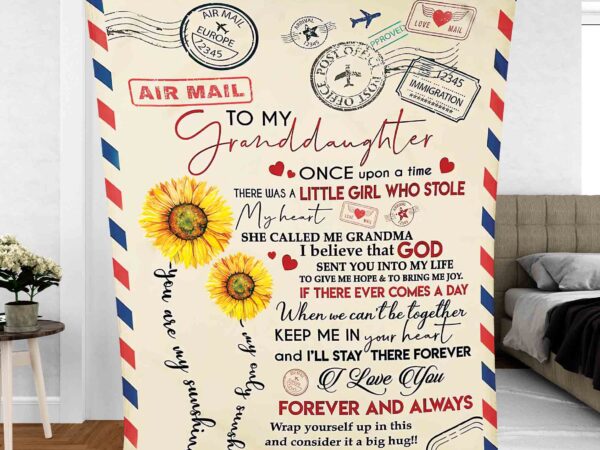 AIR MAIL
EUROPE
12345
ARRIVAL
LOVE MAIL
PPROVED
POST OFFICE
POST OFFICE
12345
IMMIGRATION
AIR MAIL
TO MY
Granddaughter
ONCE upon a time
THERE WAS A LITTLE GIRL WHO STOLE
My heart
LOVE MAIL
SHE CALLED ME GRANDMA
I believe that GOD
SENT YOU INTO MY LIFE
TO GIVE ME HOPE & TO BRING ME JOY.
IF THERE EVER COMES A DAY
When we can't be together
KEEP ME IN your heart
and I'LL STAY THERE FOREVER
I Love You
FOREVER AND ALWAYS
Wrap yourself up in this
and consider it a big hug!!
you are my sunshin
my only sunsh